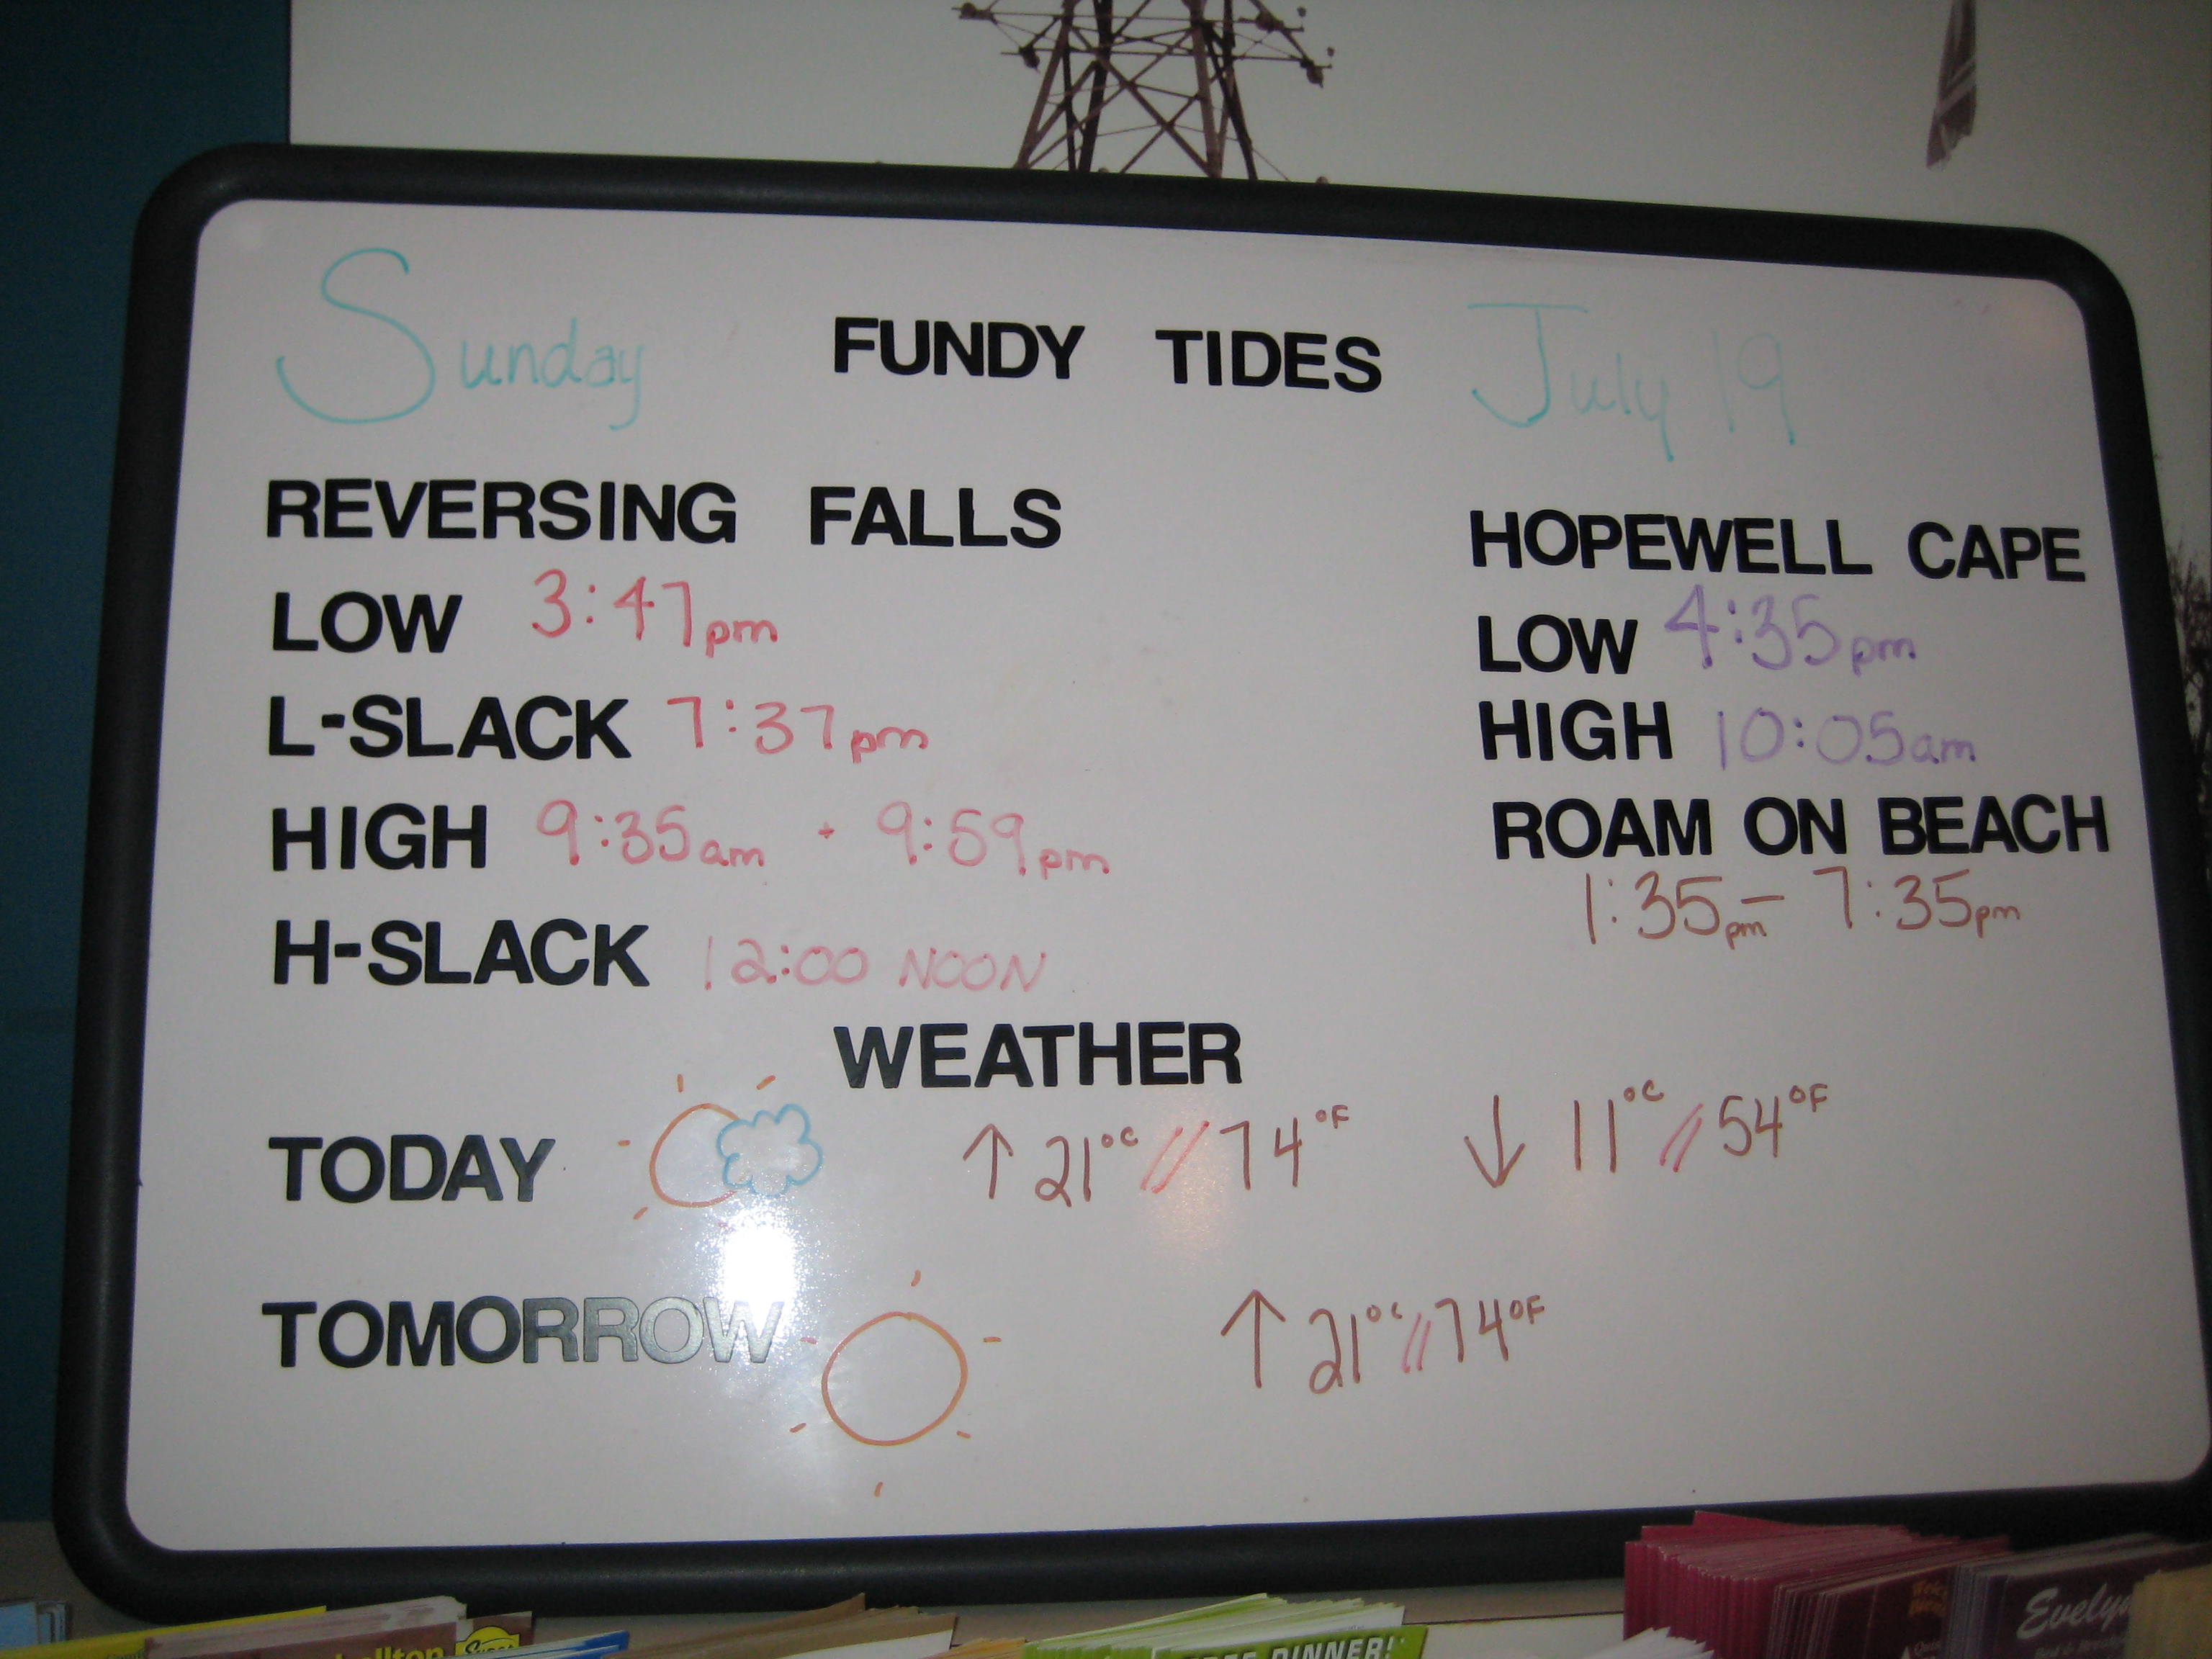 Sunday FUNDY TIDES July 19
REVERSING FALLS
LOW 3:47pm
L-SLACK 7:37pm
HIGH 9:35am + 9:59pm
H-SLACK 12:00 NOON
HOPEWELL CAPE
LOW 4:35pm
HIGH 10:05am
ROAM ON BEACH
1:35pm - 7:35pm
WEATHER
TODAY ↑ 21°C // 74°F ↓ 11°C // 54°F
TOMORROW ↑ 21°C // 74°F
DINNER!
Evelyn